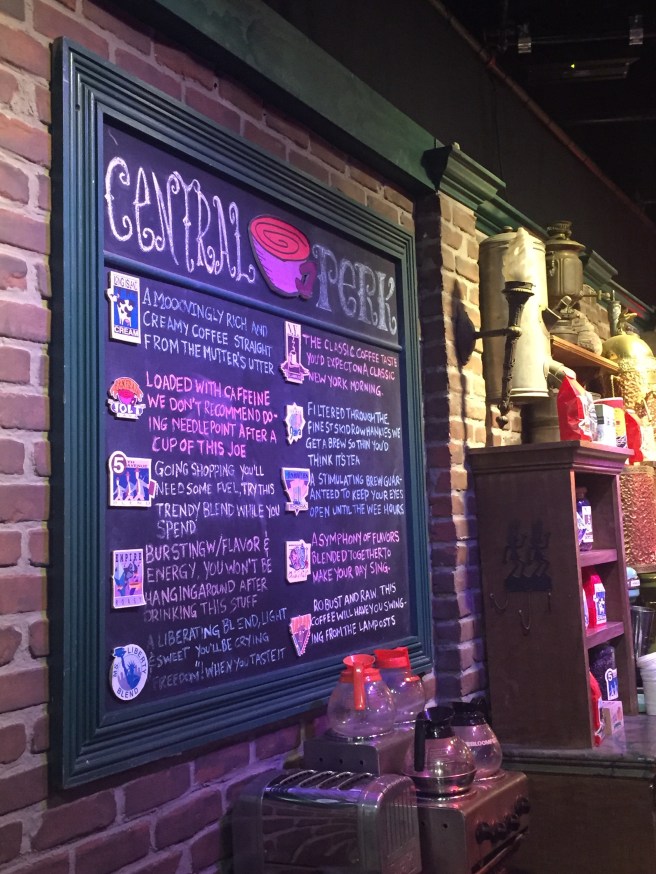 CENTRAL PERK
CREAM
A MOOOVINGLY RICH AND
CREAMY COFFEE STRAIGHT
FROM THE MUTTER'S UTTER
JOLT
LOADED WITH CAFFEINE
WE DON'T RECOMMEND DO-
ING NEEDLEPOINT AFTER A
CUP OF THIS JOE
5
GOING SHOPPING YOU'LL
NEED SOME FUEL, TRY THIS
TRENDY BLEND WHILE YOU
SPEND
EMPIRE
BURSTING W/ FLAVOR &
ENERGY, YOU WON'T BE
HANGING AROUND AFTER
DRINKING THIS STUFF
MS. LIBERTY
BLEND
A LIBERATING BLEND, LIGHT
& SWEET YOU'LL BE CRYING
"FREEDOM"! WHEN YOU TASTE IT
THE CLASSIC COFFEE TASTE
YOU'D EXPECT ON A CLASSIC
NEW YORK MORNING.
FILTERED THROUGH THE
FINEST SKID ROW HANKIES WE
GET A BREW SO THIN YOU'D
THINK ITS TEA
A STIMULATING BREW GUAR-
ANTEED TO KEEP YOUR EYES
OPEN UNTIL THE WEE HOURS
A SYMPHONY OF FLAVORS
BLENDED TOGETHER TO
MAKE YOUR DAY SING-
ROBUST AND RAW THIS
COFFEE WILL HAVE YOU SWING-
ING FROM THE LAMPOSTS